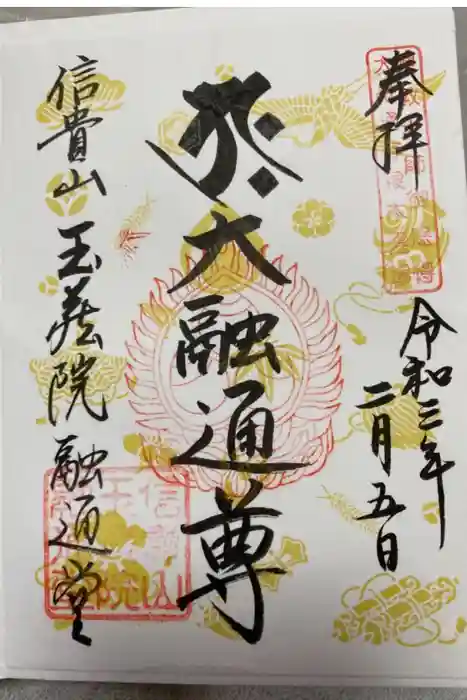 奉拝
令和三年
二月五日
大融通尊
信貴山 玉蔵院 融通堂